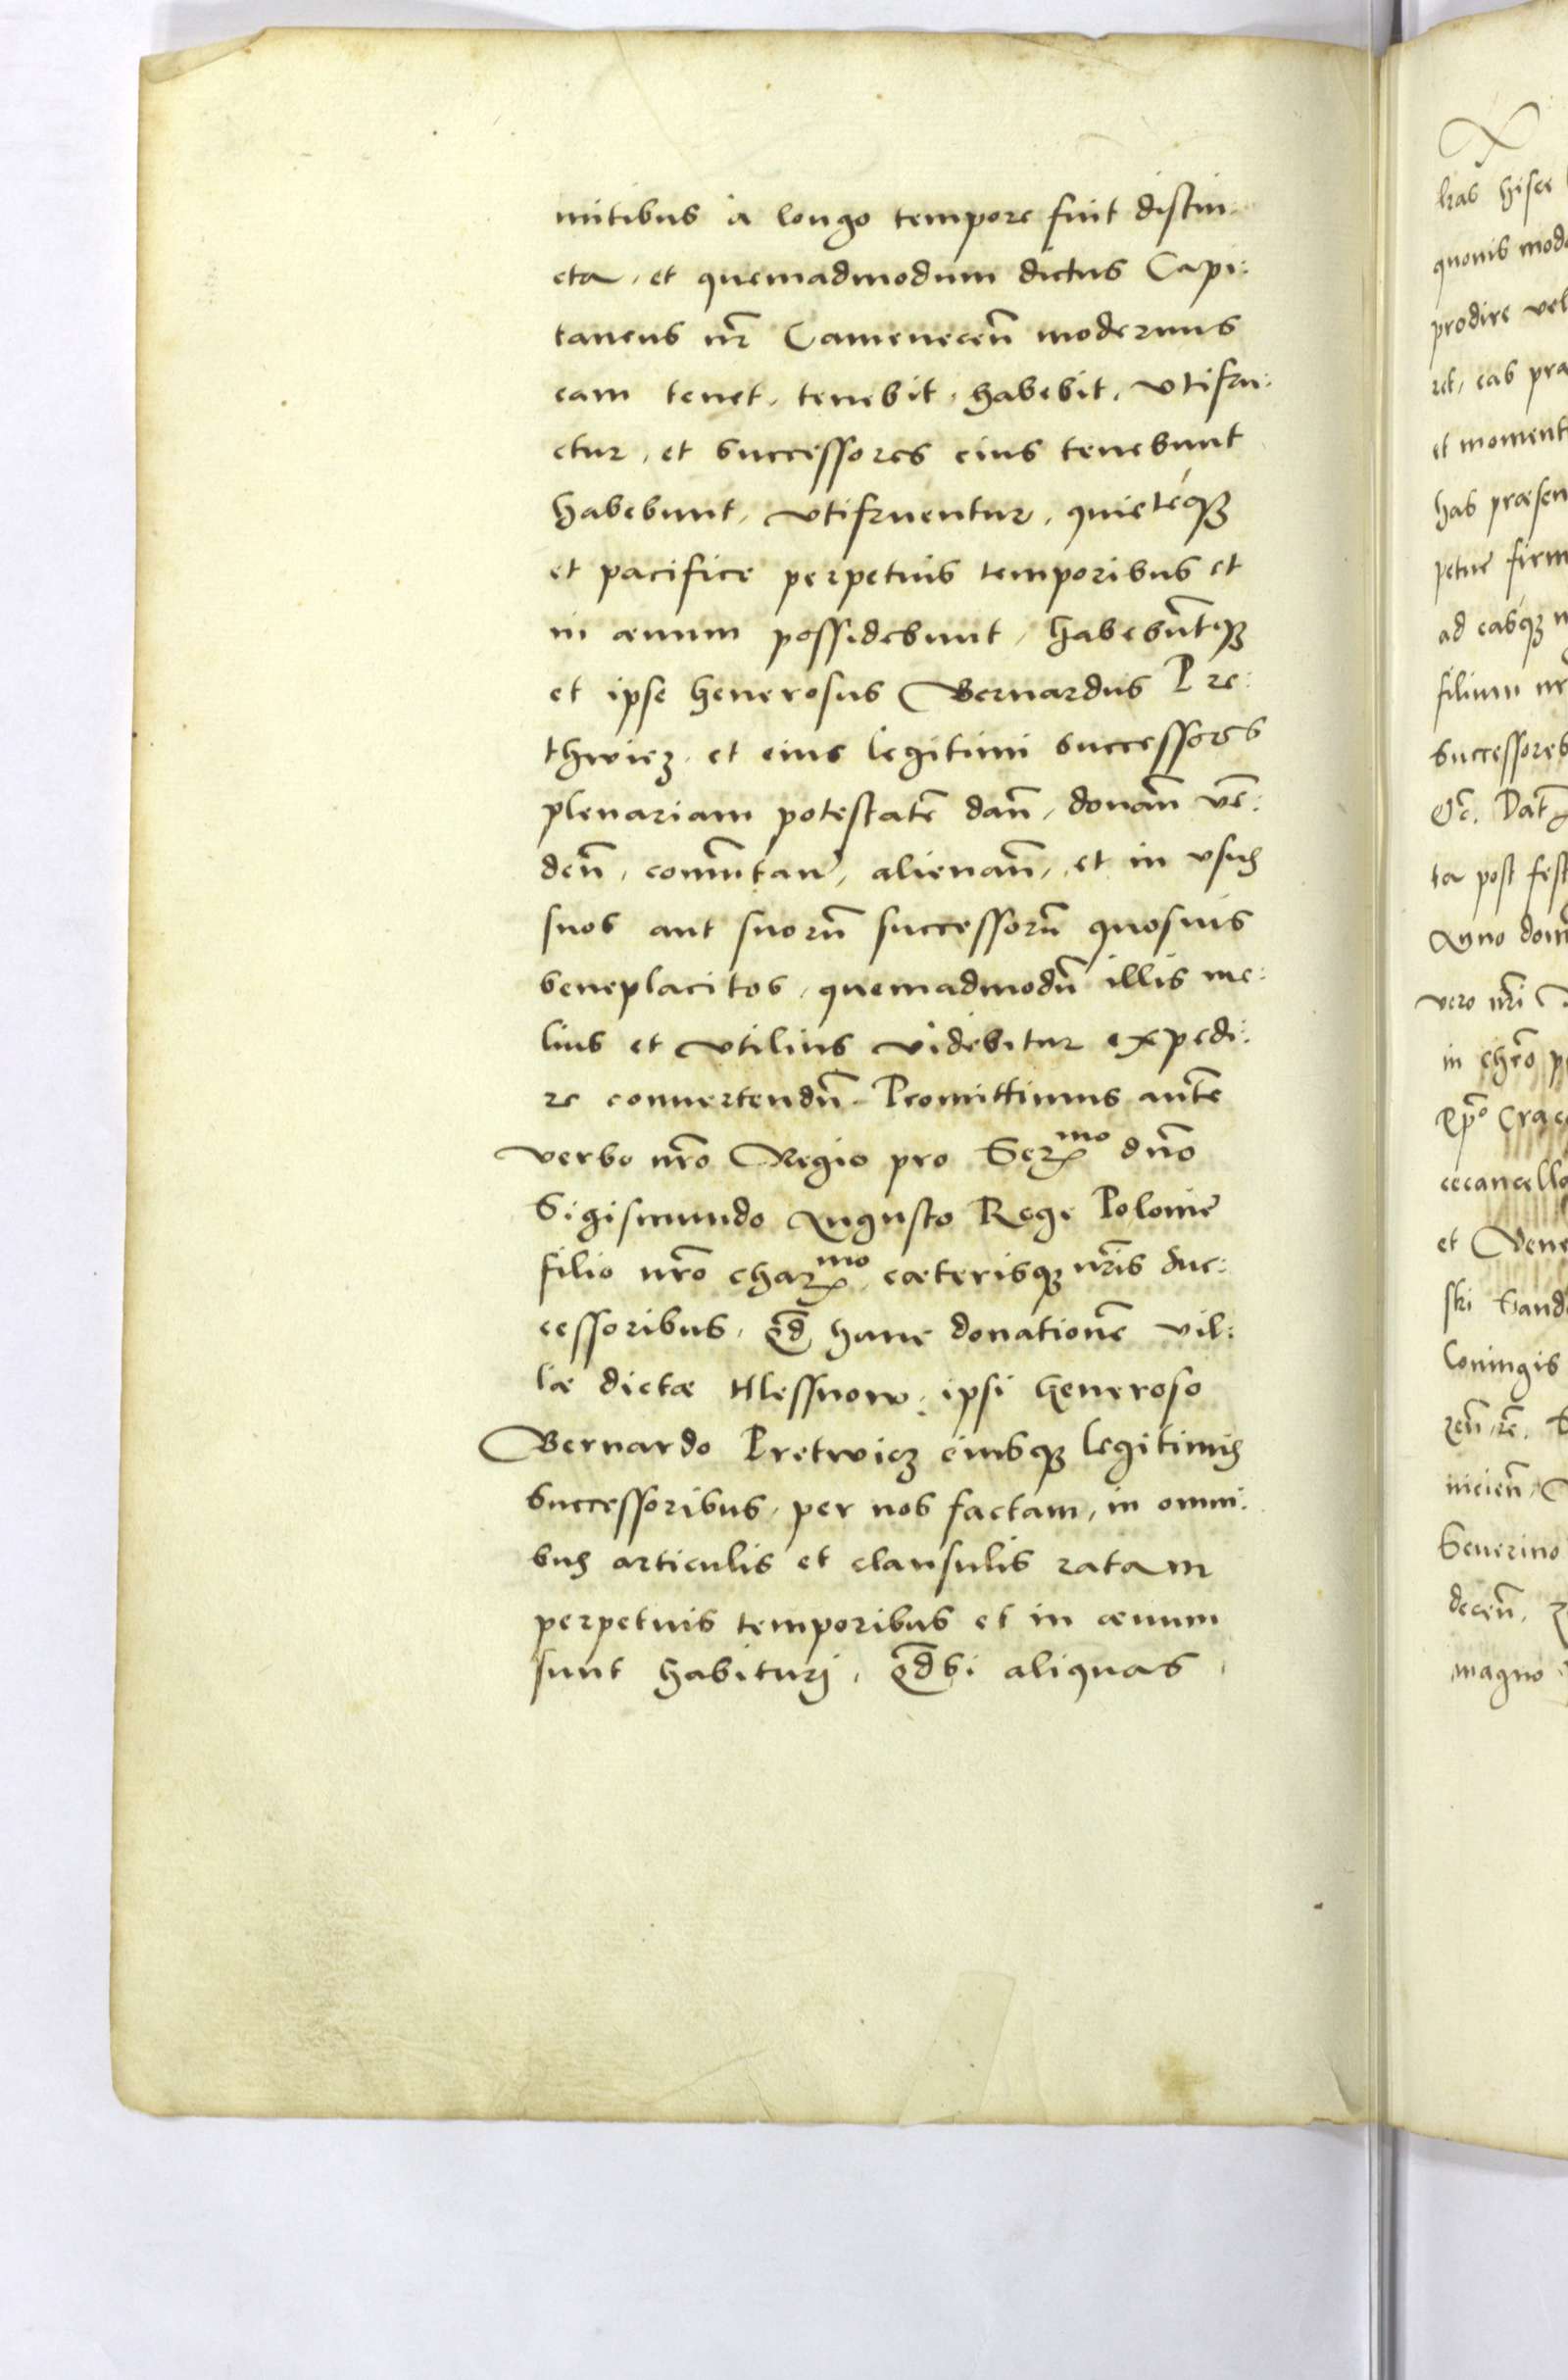 mitibus a longo tempore fuit distin-
cta, et quemadmodum dictus Capi:
taneus nr̃ Camenecen̄ modernus
eam tenet, tenebit, habebit, vtifru:
etur, et successores eius tenebunt
habebunt, vtifruentur, quieteq3
et pacifice perpetuis temporibus et
in æuum possidebunt, habebūtq3
et ipse generosus Bernardus Pre:
thwicz et eius legitimi successores
plenariam potestatē dan̄, donan̄ vē:
den̄, comutan̄, alienan̄, et in vsus
suos aut suorū successorū quosuis
beneplacitos, quemadmodū illis me:
lius et vtilius videbitur expedi:
re conuertendū. Promittimus autē
verbo nrō Regio pro Ser.mo dn̄o
Sigismundo Augusto Rege Polonie
filio nrō char.mo cæterisq3 nrīs suc:
cessoribus, qd hanc donationē vil:
læ dictæ Hlessnow, ipsi generoso
Bernardo Pretwicz eiusq3 legitimis
successoribus, per nos factam, in omni:
bus articulis et clausulis ratam
perpetuis temporibus et in æuum
sunt habituri, qdsi aliquas
tras hisce
quouis mod
prodire vel
ret, eas pra
et moment
has præsen
petue firm
ad easq3
filium nr
successores
Dat
ta post fest
Anno dom
vero nrī
in chrō p
Crac
cecancella
et Vene
ski Sand
Coningis
nicien̄
Seuerino
decen̄
magno